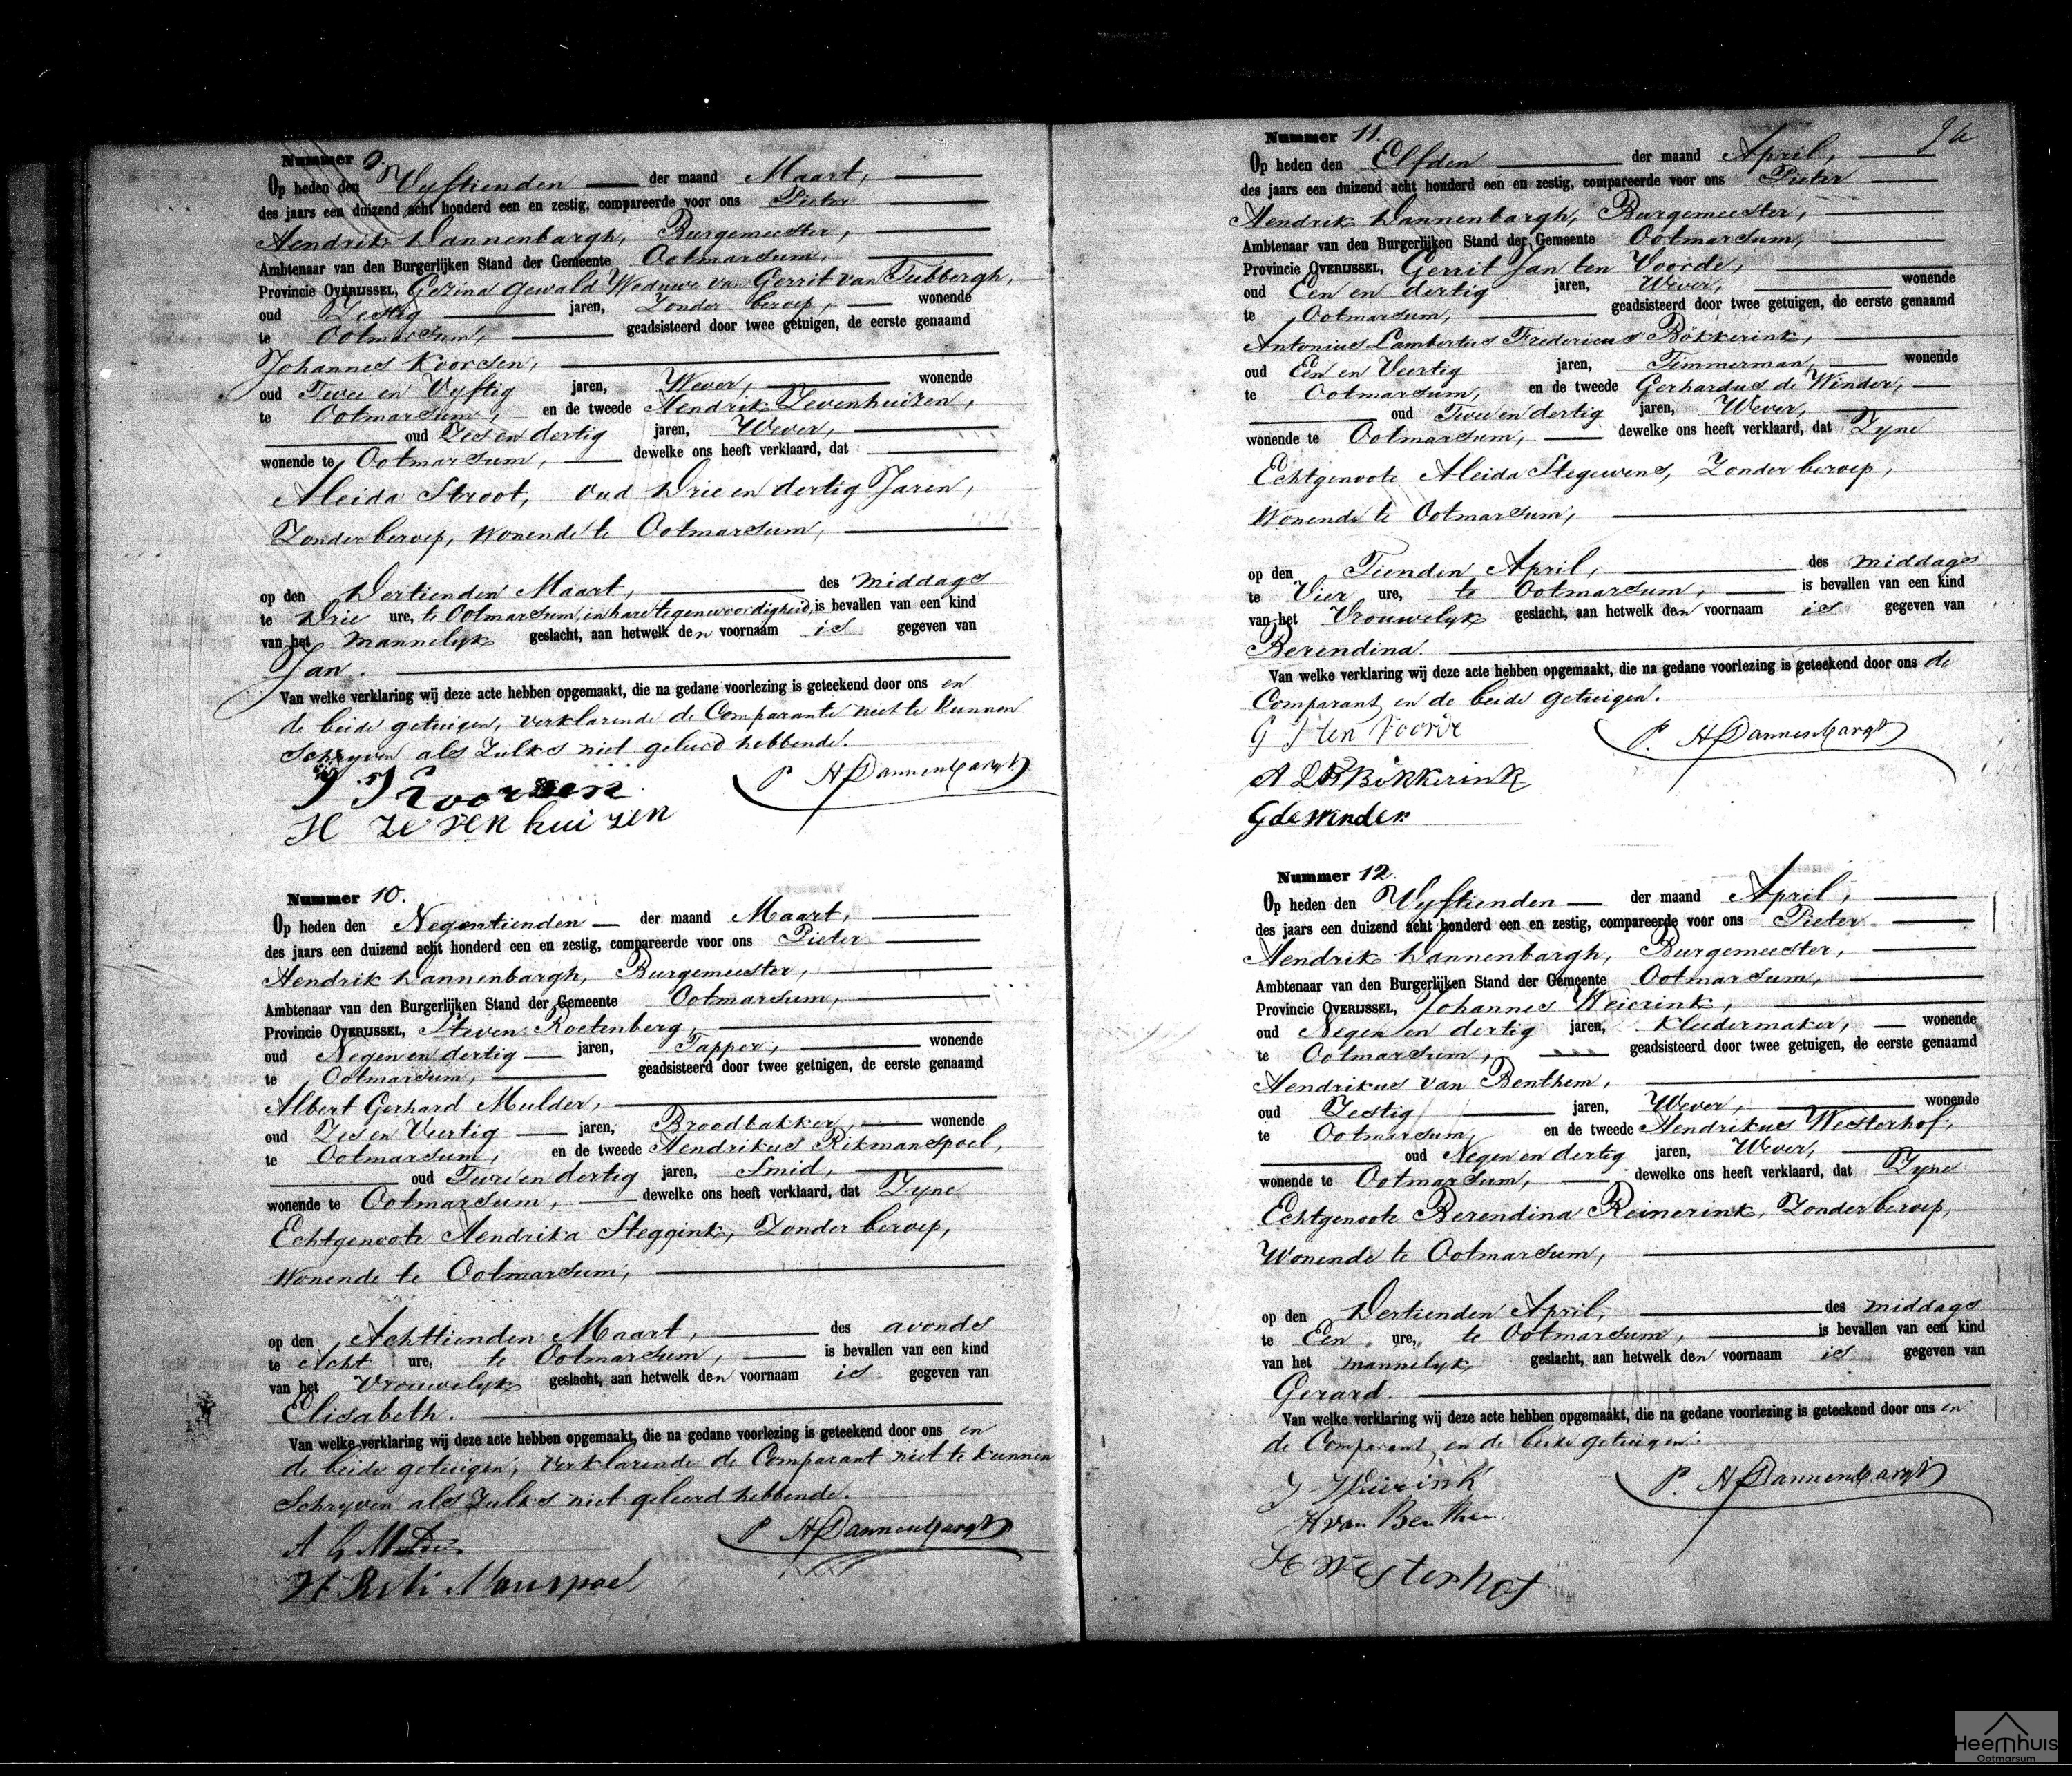 Nummer 9.
Op heden den Vyftienden der maand Maart,
des jaars een duizend acht honderd een en zestig, compareerde voor ons Pieter
Hendrik Dannenbargh, Burgemeester,
Ambtenaar van den Burgerlijken Stand der Gemeente Ootmarsum,
Provincie OVERIJSSEL, Gezina Gewald Weduwe van Gerrit van Tubbergh,
oud Zestig jaren, Zonder beroep, wonende
te Ootmarsum, geadsisteerd door twee getuigen, de eerste genaamd
Johannes Koorsen,
oud Twee en Vyftig jaren, Wever, wonende
te Ootmarsum, en de tweede Hendrik Zevenhuizen,
oud Zes en dertig jaren, Wever,
wonende te Ootmarsum, dewelke ons heeft verklaard, dat
Aleida Stroot, oud Drie en dertig Jaren,
Zonder beroep, wonende te Ootmarsum,
op den Dertienden Maart, des middags
te Drie ure, te Ootmarsum, in hare tegenwoordigheid, is bevallen van een kind
van het mannelyk geslacht, aan hetwelk den voornaam is gegeven van
Jan.
Van welke verklaring wij deze acte hebben opgemaakt, die na gedane voorlezing is geteekend door ons en
de beide getuigen, verklarende de Comparante niet te kunnen
Schryven als Zulks niet geleerd hebbende.
J Koorsen P. H Dannenbargh
H Zevenhuizen
Nummer 10.
Op heden den Negentienden der maand Maart,
des jaars een duizend acht honderd een en zestig, compareerde voor ons Pieter
Hendrik Dannenbargh, Burgemeester,
Ambtenaar van den Burgerlijken Stand der Gemeente Ootmarsum,
Provincie OVERIJSSEL, Steven Roetenberg,
oud Negen en dertig jaren, Tapper, wonende
te Ootmarsum, geadsisteerd door twee getuigen, de eerste genaamd
Albert Gerhard Mulder,
oud Zes en Veertig jaren, Broodbakker, wonende
te Ootmarsum, en de tweede Hendrikus Rikmanspoel,
oud Twee en dertig jaren, Smid,
wonende te Ootmarsum, dewelke ons heeft verklaard, dat Zyne
Echtgenoote Hendrika Steggink, Zonder beroep,
Wonende te Ootmarsum,
op den Achttienden Maart, des avonds
te Acht ure, te Ootmarsum, is bevallen van een kind
van het Vrouwelyk geslacht, aan hetwelk den voornaam is gegeven van
Elisabeth.
Van welke verklaring wij deze acte hebben opgemaakt, die na gedane voorlezing is geteekend door ons en
de beide getuigen, verklarende de Comparant niet te kunnen
Schryven als Zulks niet geleerd hebbende.
A G Mulder P H Dannenbargh
H Rikmanspoel
Nummer 11.
Op heden den Elfden der maand April,
des jaars een duizend acht honderd een en zestig, compareerde voor ons Pieter
Hendrik Dannenbargh, Burgemeester,
Ambtenaar van den Burgerlijken Stand der Gemeente Ootmarsum,
Provincie OVERIJSSEL, Gerrit Jan ten Voorde,
oud Een en dertig jaren, Wever, wonende
te Ootmarsum, geadsisteerd door twee getuigen, de eerste genaamd
Antonius Lambertus Fredericus Bökkerink,
oud Een en Veertig jaren, Timmerman, wonende
te Ootmarsum, en de tweede Gerhardus de Winder,
oud Twee en dertig jaren, Wever,
wonende te Ootmarsum, dewelke ons heeft verklaard, dat Zyne
Echtgenoote Aleida Stegewens, Zonder beroep,
Wonende te Ootmarsum,
op den Tienden April, des middags
te Vier ure, te Ootmarsum, is bevallen van een kind
van het Vrouwelyk geslacht, aan hetwelk den voornaam is gegeven van
Berendina.
Van welke verklaring wij deze acte hebben opgemaakt, die na gedane voorlezing is geteekend door ons de
Comparant en de beide getuigen.
G J ten Voorde P. H Dannenbargh
A L F Bökkerink
G de Winder
Nummer 12.
Op heden den Vyftienden der maand April,
des jaars een duizend acht honderd een en zestig, compareerde voor ons Pieter
Hendrik Dannenbargh, Burgemeester,
Ambtenaar van den Burgerlijken Stand der Gemeente Ootmarsum,
Provincie OVERIJSSEL, Johannes Weierink,
oud Negen en dertig jaren, Kleedermaker, wonende
te Ootmarsum, geadsisteerd door twee getuigen, de eerste genaamd
Hendrikus van Benthem,
oud Zestig jaren, Wever, wonende
te Ootmarsum, en de tweede Hendrikus Westerhof,
oud Negen en dertig jaren, Wever,
wonende te Ootmarsum, dewelke ons heeft verklaard, dat Zyne
Echtgenoote Berendina Reinerink, Zonder beroep,
Wonende te Ootmarsum,
op den Dertienden April, des middags
te Een ure, te Ootmarsum, is bevallen van een kind
van het mannelyk geslacht, aan hetwelk den voornaam is gegeven van
Gerard.
Van welke verklaring wij deze acte hebben opgemaakt, die na gedane voorlezing is geteekend door ons en
de Comparant en de beide getuigen.
J Weierink P. H Dannenbargh
H van Benthem
H Westerhof
Heemhuis
Ootmarsum